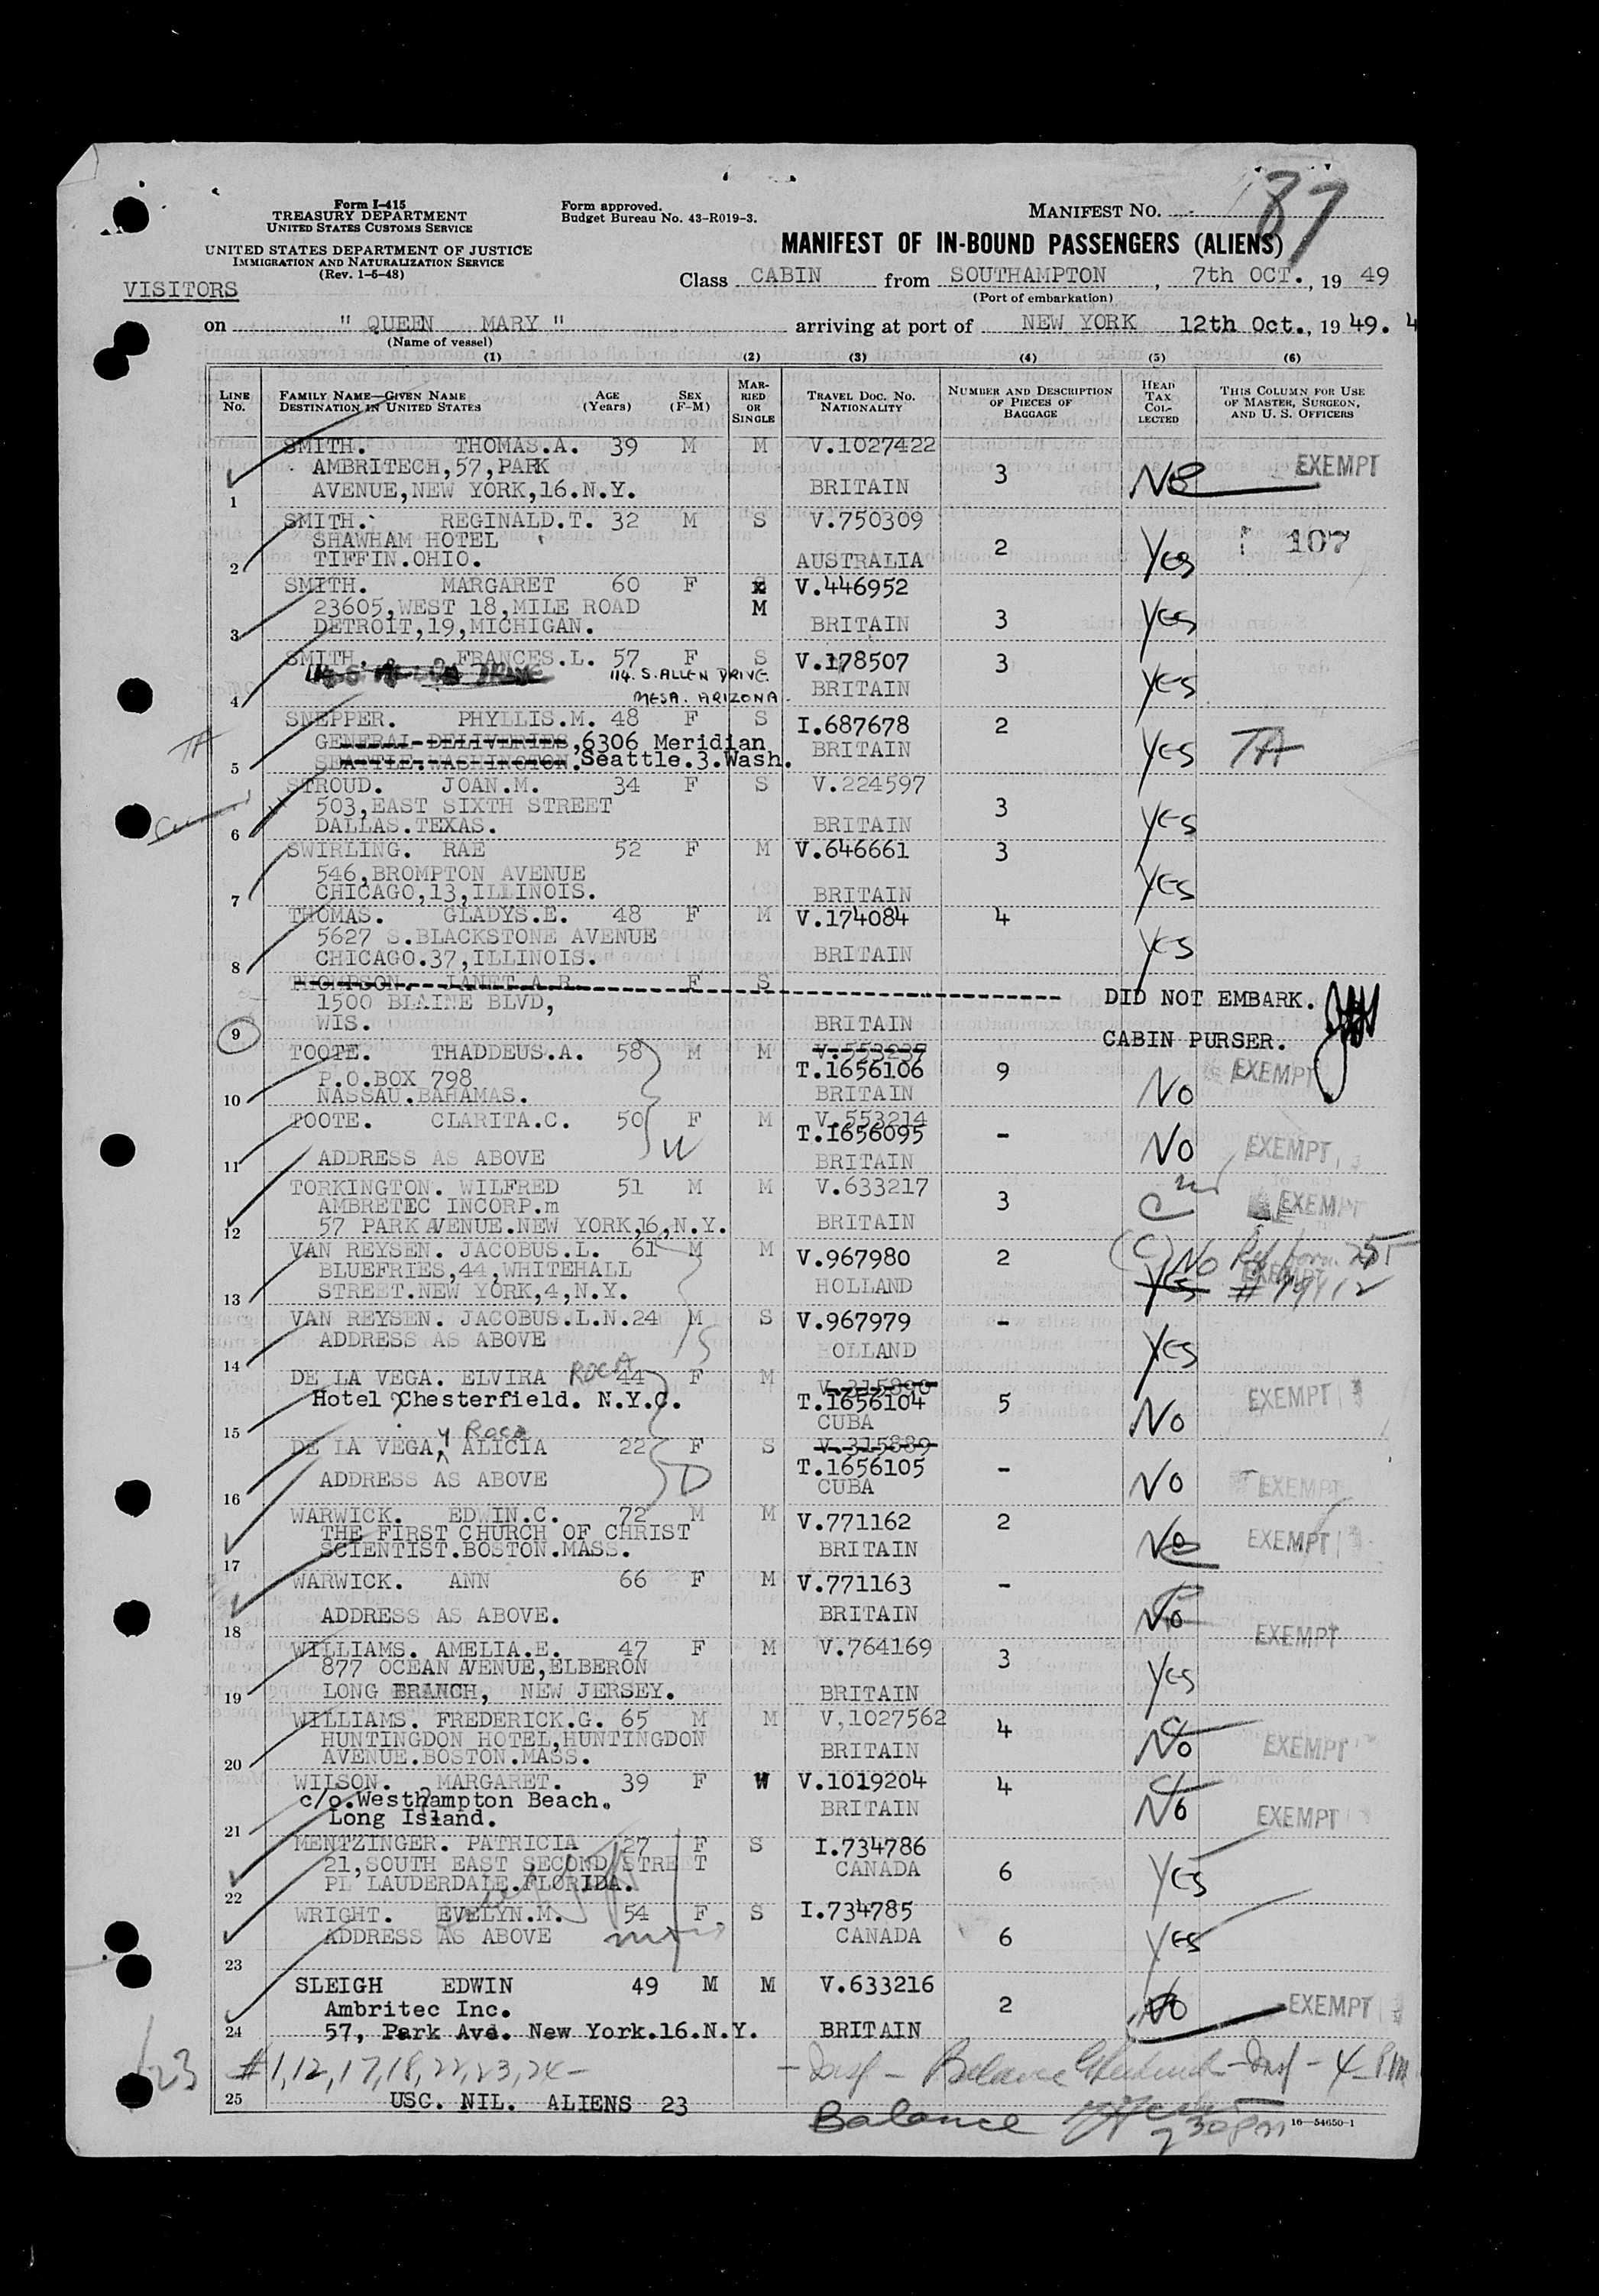 Form I-415
TREASURY DEPARTMENT
UNITED STATES CUSTOMS SERVICE
UNITED STATES DEPARTMENT OF JUSTICE
IMMIGRATION AND NATURALIZATION SERVICE
(Rev. 1-6-48)
Form approved.
Budget Bureau No. 43-R019-3.
MANIFEST NO. 87
MANIFEST OF IN-BOUND PASSENGERS (ALIENS)
Class CABIN from SOUTHAMPTON, 7th OCT., 19 49
(Port of embarkation)
VISITORS
on " QUEEN MARY " arriving at port of NEW YORK 12th Oct., 19 49. 4
(Name of vessel)
(1) (2) (3) (4) (5) (6)
LINE No. FAMILY NAME—GIVEN NAME DESTINATION IN UNITED STATES AGE (Years) SEX (F-M) MARRIED OR SINGLE TRAVEL DOC. No. NATIONALITY NUMBER AND DESCRIPTION OF PIECES OF BAGGAGE HEAD TAX COLLECTED THIS COLUMN FOR USE OF MASTER, SURGEON, AND U. S. OFFICERS
SMITH. THOMAS.A. 39 M M V.1027422
AMBRITECH,57,PARK 3 No EXEMPT
1 AVENUE,NEW YORK,16.N.Y. BRITAIN
SMITH. REGINALD.T. 32 M S V.750309
SHAWHAM HOTEL 2 Yes 107
2 TIFFIN.OHIO. AUSTRALIA
SMITH. MARGARET 60 F M V.446952
23605,WEST 18,MILE ROAD
3 DETROIT,19,MICHIGAN. BRITAIN 3 Yes
SMITH. FRANCES.L. 57 F S V.178507 3
114. S. ALLEN DRIVE
4 MESA. ARIZONA. BRITAIN Yes
SNEPPER. PHYLLIS.M. 48 F S I.687678 2
TA GENERAL DELIVERIES,6306 Meridian BRITAIN Yes TA
5 SEATTLE.WASHINGTON.Seattle.3.Wash.
STROUD. JOAN.M. 34 F S V.224597
503,EAST SIXTH STREET 3
6 DALLAS.TEXAS. BRITAIN Yes
SWIRLING. RAE 52 F M V.646661 3
546,BROMPTON AVENUE
7 CHICAGO,13,ILLINOIS. BRITAIN Yes
THOMAS. GLADYS.E. 48 F M V.174084 4
5627 S.BLACKSTONE AVENUE
8 CHICAGO.37,ILLINOIS. BRITAIN Yes
THOMPSON. JANET.A.R. F S
1500 BLAINE BLVD, DID NOT EMBARK.
9 WIS. BRITAIN CABIN PURSER.
TOOTE. THADDEUS.A. 58 M M V.553237
P.O.BOX 798 T.1656106 9 EXEMPT
10 NASSAU.BAHAMAS. BRITAIN No
TOOTE. CLARITA.C. 50 F M V.553214
T.1656095 - No EXEMPT
11 ADDRESS AS ABOVE BRITAIN
TORKINGTON. WILFRED 51 M M V.633217
AMBRETEC INCORP.m 3 EXEMPT
12 57 PARK AVENUE.NEW YORK,16,N.Y. BRITAIN
VAN REYSEN. JACOBUS.L. 61 M M V.967980 2 (C) No
BLUEFRIES,44,WHITEHALL HOLLAND Yes EXEMPT
13 STREET.NEW YORK,4,N.Y.
VAN REYSEN. JACOBUS.L.N.24 M S V.967979 -
ADDRESS AS ABOVE HOLLAND Yes
14
DE LA VEGA. ELVIRA ROCA 44 F M V.315890
Hotel Chesterfield. N.Y.C. T.1656104 5 EXEMPT
15 CUBA No
y Roca
DE LA VEGA, ALICIA 22 F S V.315889
T.1656105 -
16 ADDRESS AS ABOVE CUBA No EXEMPT
WARWICK. EDWIN.C. 72 M M V.771162 2
THE FIRST CHURCH OF CHRIST
17 SCIENTIST.BOSTON.MASS. BRITAIN No EXEMPT
WARWICK. ANN 66 F M V.771163 -
18 ADDRESS AS ABOVE. BRITAIN No EXEMPT
WILLIAMS. AMELIA.E. 47 F M V.764169
877 OCEAN AVENUE,ELBERON 3
19 LONG BRANCH, NEW JERSEY. BRITAIN Yes
WILLIAMS. FREDERICK.G. 65 M M V,1027562
HUNTINGDON HOTEL,HUNTINGDON 4
20 AVENUE.BOSTON.MASS. BRITAIN No EXEMPT
WILSON. MARGARET. 39 F W V.1019204 4
c/o.Westhampton Beach. BRITAIN No EXEMPT
21 Long Island.
MENTZINGER. PATRICIA 27 F S I.734786
21,SOUTH EAST SECOND STREET CANADA 6
22 PL LAUDERDALE.FLORIDA. Yes
WRIGHT. EVELYN.M. 54 F S I.734785
ADDRESS AS ABOVE CANADA 6 Yes
23
SLEIGH EDWIN 49 M M V.633216
Ambritec Inc. 2 No EXEMPT
24 57, Park Ave. New York.16.N.Y. BRITAIN
23 #1,12,17,18,22,23,24- - Insp - Balance - Insp - 4 P.M
25 USC. NIL. ALIENS 23
Balance
16—54650-1